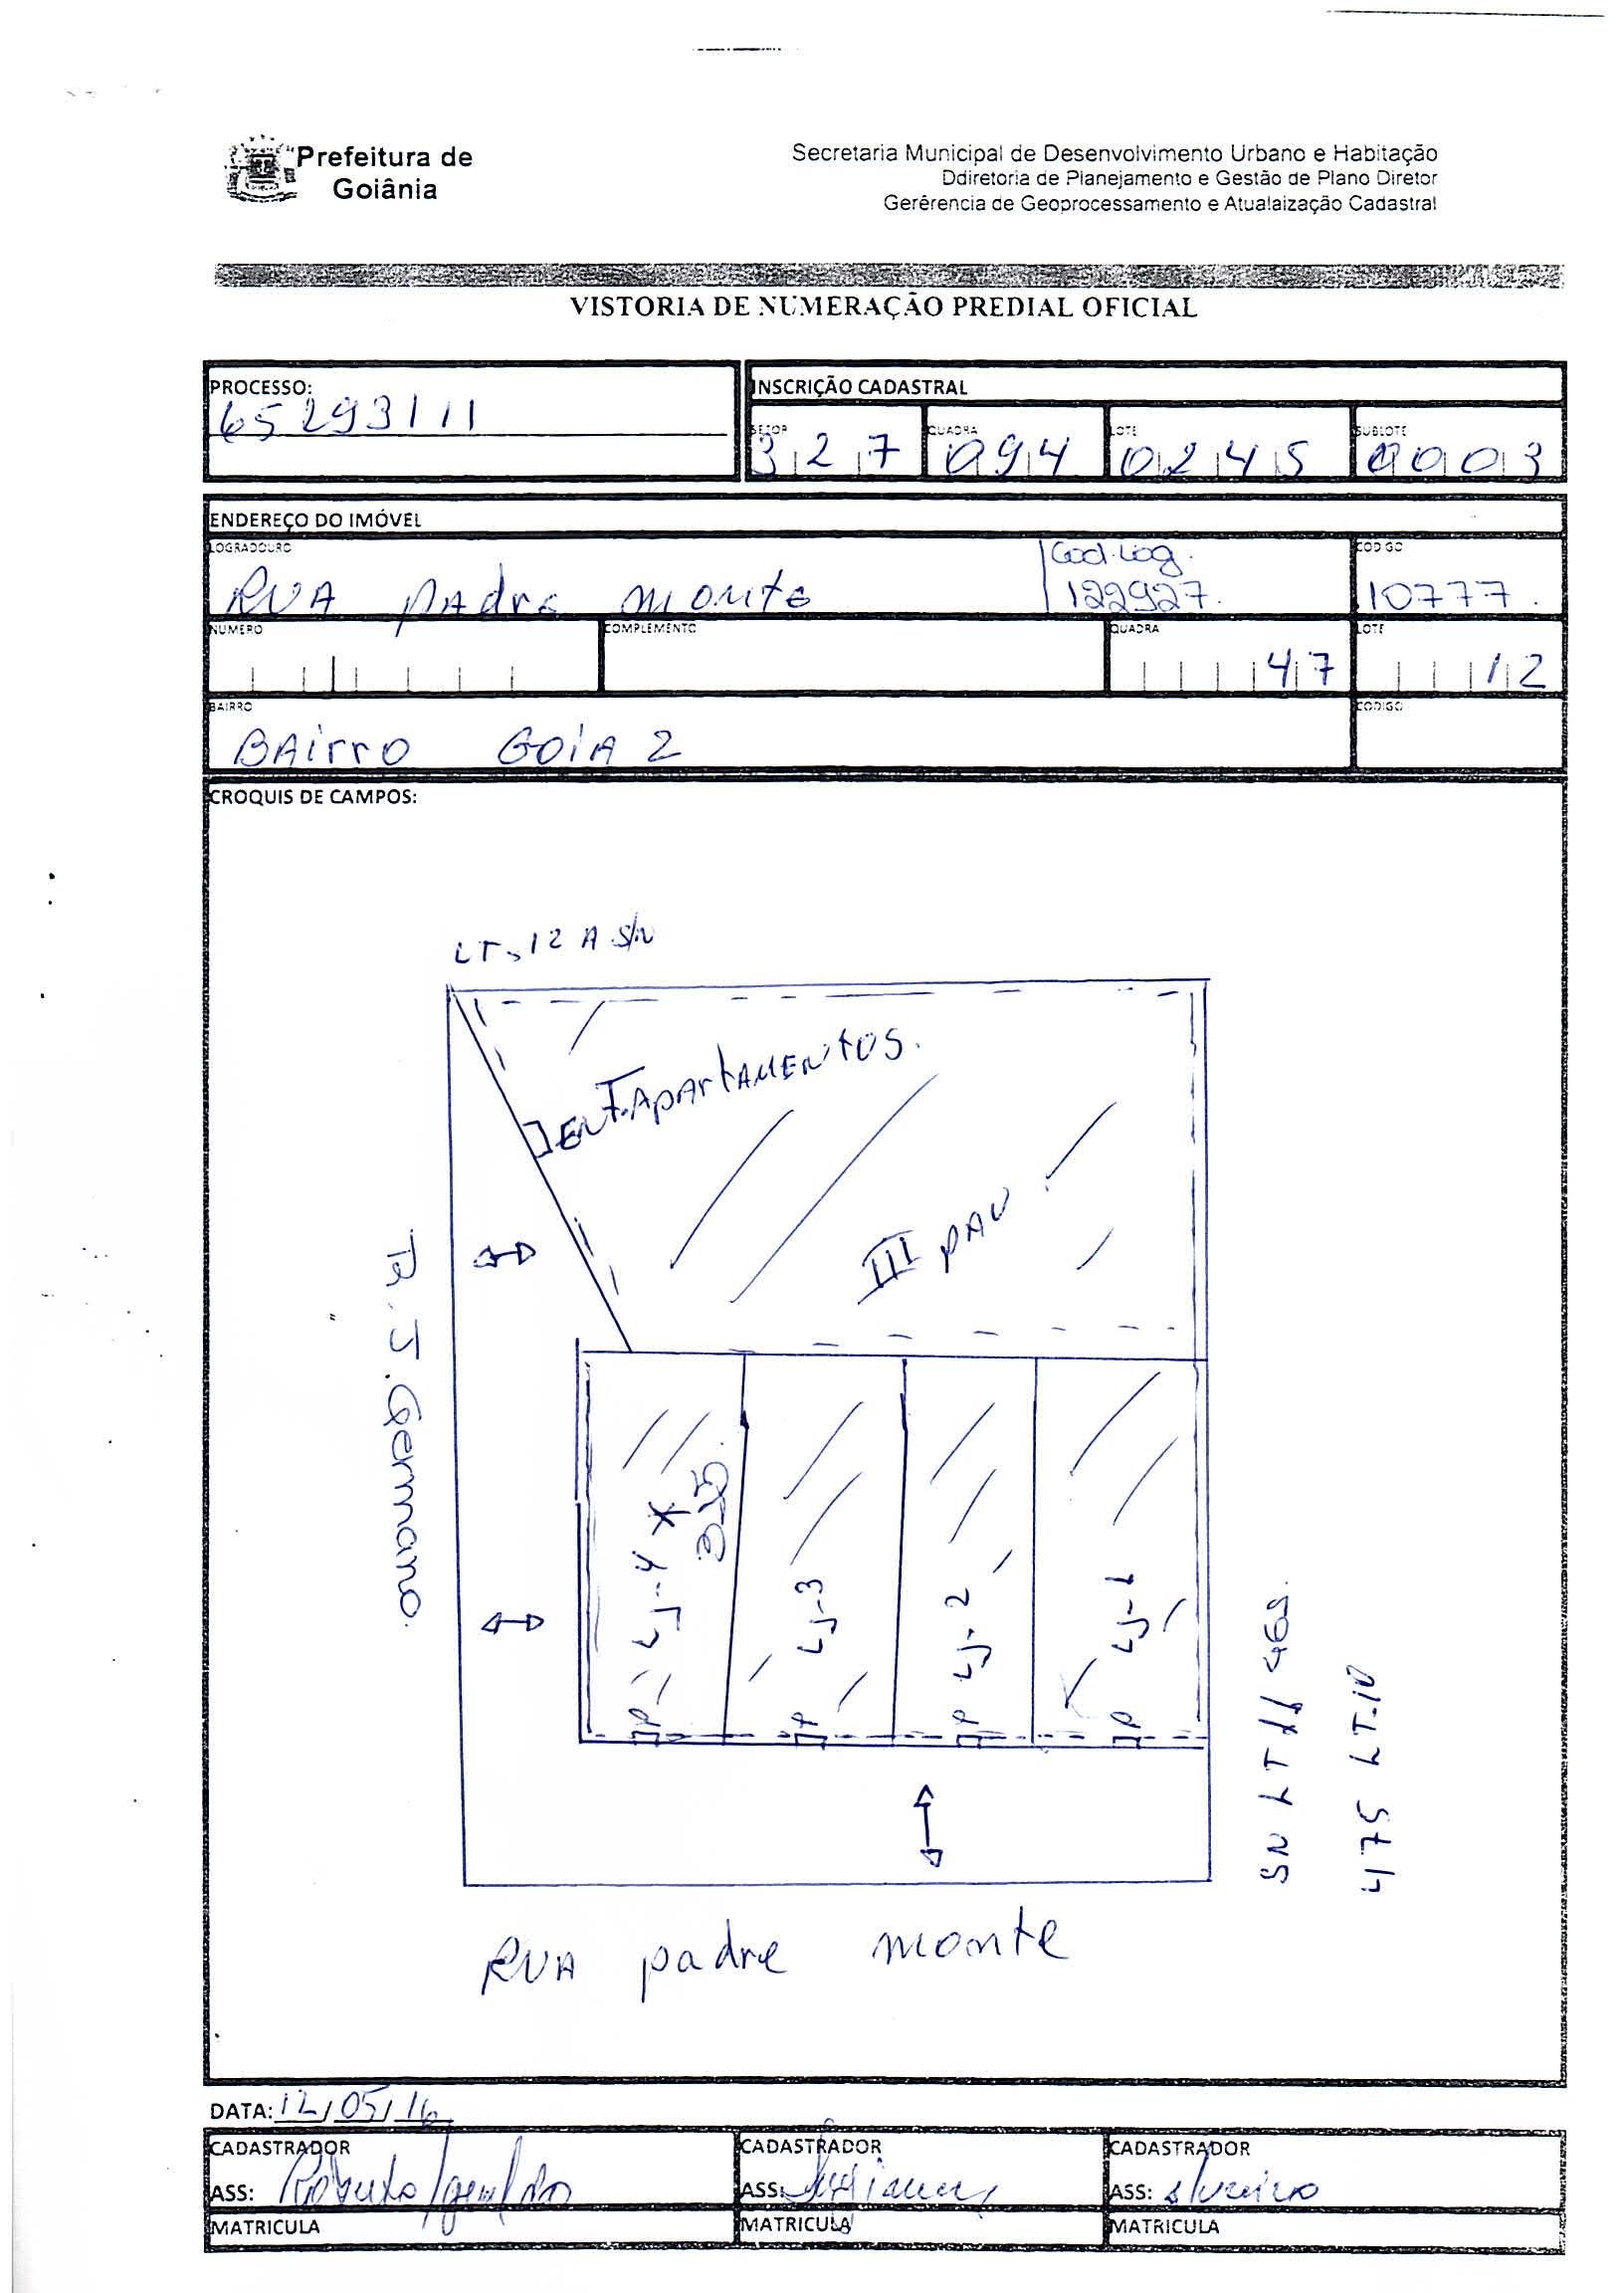 Prefeitura de
Goiânia
Secretaria Municipal de Desenvolvimento Urbano e Habitação
Ddiretoria de Planejamento e Gestão de Plano Diretor
Gerêrencia de Geoprocessamento e Atualaização Cadastral
VISTORIA DE NUMERAÇÃO PREDIAL OFICIAL
PROCESSO:
65293111
INSCRIÇÃO CADASTRAL
SETOR QUADRA LOTE SUBLOTE
327 094 0245 0003
ENDEREÇO DO IMÓVEL
LOGRADOURO Cod. Log. CODIGO
RUA padre monte 122927. 10777.
NUMERO COMPLEMENTO QUADRA LOTE
47 12
BAIRRO CODIGO
BAirro GOiA 2
CROQUIS DE CAMPOS:
LT. 12 A S/N
ENT. APArtAMENtOS.
III PAV
R. J. Germano.
Lj-4 *
325.
Lj-3
Lj-2
Lj-1
P P P P
SN LT 11 469.
475 LT.10
RUA padre monte
DATA: 12/05/16
CADASTRADOR CADASTRADOR CADASTRADOR
ASS: ASS: ASS:
MATRICULA MATRICULA MATRICULA